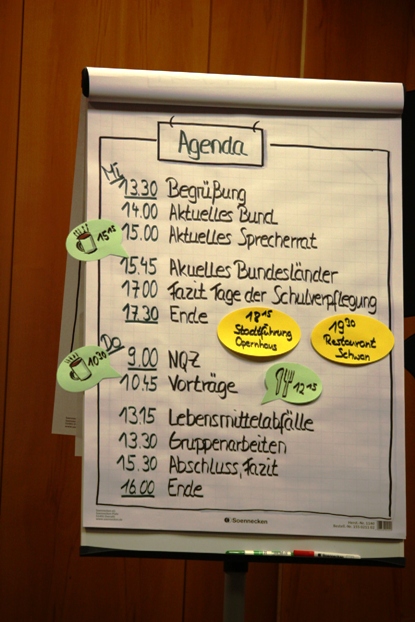 Agenda
Mi
13.30 Begrüßung
14.00 Aktuelles Bund
15.00 Aktuelles Sprecherrat
15¹⁵
15.45 Akuelles Bundesländer
17.00 Fazit Tage der Schulverpflegung
17.30 Ende
18¹⁵
Stadtführung
Opernhaus
19³⁰
Restaurant
Schwan
Do
9.00 NQZ
10³⁰
10.45 Vorträge
12⁴⁵
13.15 Lebensmittelabfälle
13.30 Gruppenarbeiten
15.30 Abschluss, Fazit
16.00 Ende
Soennecken